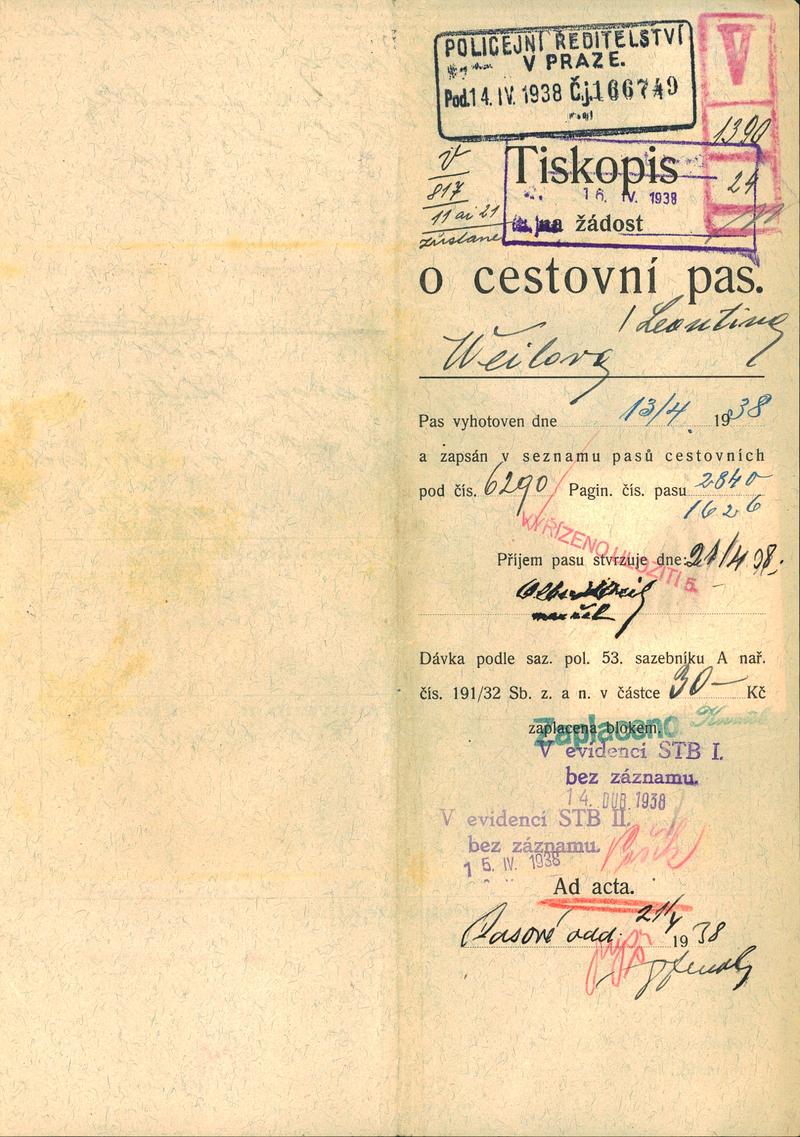 POLICEJNÍ ŘEDITELSTVÍ
V PRAZE.
Pod. 14. IV. 1938 Čj. 166749
V
1390
24
V
817
11 ai 21
zůstane
Tiskopis
16. IV. 1938
na žádost
o cestovní pas.
Weilova Leontina
Pas vyhotoven dne 13/4 1938
a zapsán v seznamu pasů cestovních
pod čís. 6290 Pagin. čís. pasu 2840
1626
VYŘÍZENO ULOŽITI 5.
Příjem pasu stvrzuje dne: 21/4 38.
Dávka podle saz. pol. 53. sazebníku A nař.
čís. 191/32 Sb. z. a n. v částce 30— Kč
zaplacena blokem.
Zaplaceno
V evidenci STB I.
bez záznamu.
14. DUB. 1938
V evidenci STB II.
bez záznamu.
15. IV. 1938
Ad acta.
Pasové odd. 21/4 1938